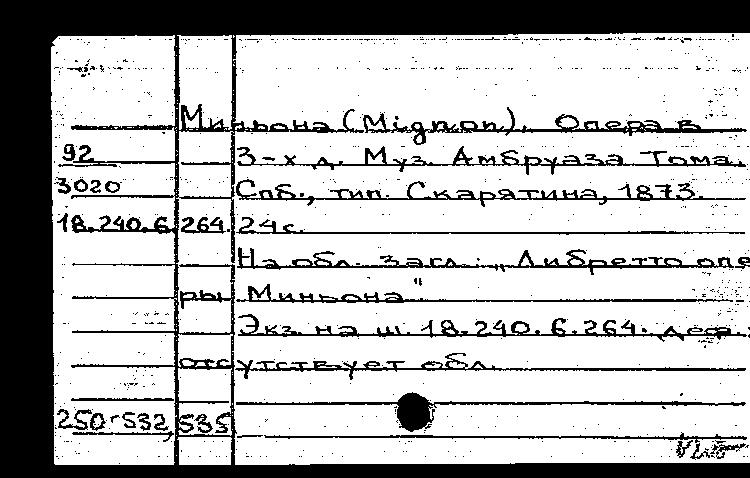 Миньона (Mignon). Опера в
92 3-х д. Муз. Амбруаза Тома.
3020 Спб., тип. Скарятина, 1873.
18.240.6.264. 24 с.
На обл. загл.: „Либретто опе
ры Миньона"
Экз. на ш. 18.240.6.264. деф.:
отсутствует обл.
250-532, 535